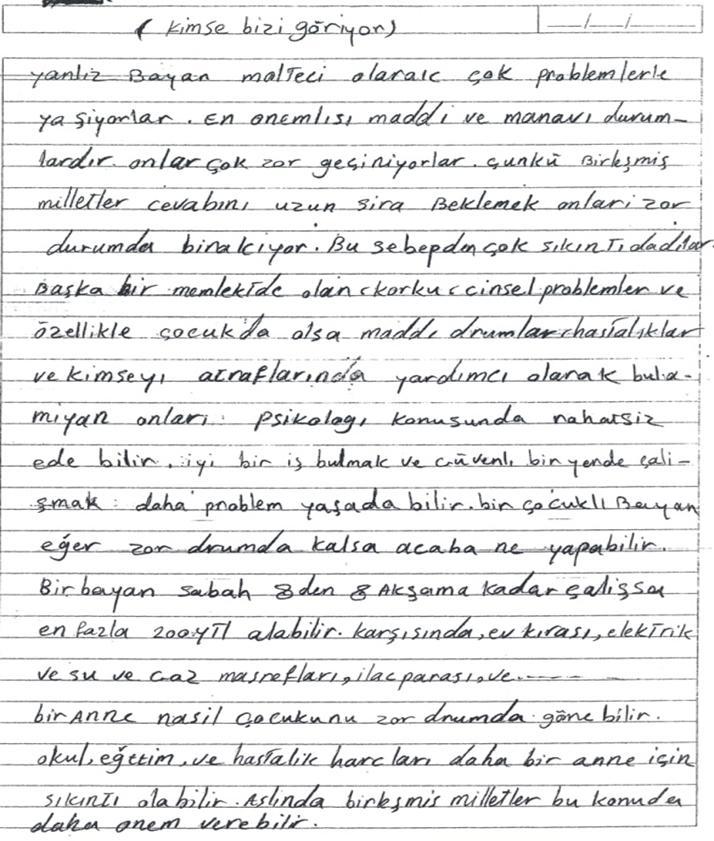 ( kimse bizi göriyor)
yanliz Bayan molteci olarak çok problemlerle
yaşiyorlar. En onemlısı maddi ve manavı durum-
lardır. onlar çok zor geçiniyorlar. çunkü Birleşmiş
milletler cevabını uzun sira Beklemek onlari zor
durumda birakıyor. Bu sebepden çok sıkıntıdadılar.
Başka bir memlekide olan (korku ( cinsel problemler ve
özellikle çocuk'da olsa maddi drumlar (hastalıklar
ve kimseyı atraflarında yardımcı olarak bula-
miyan onları: psikologı konusunda nahatsiz
ede bilir. iyi bir iş bulmak ve Güvenlı bir yerde çali-
şmak: daha problem yaşada bilir. bir çocuklı Bayan
eğer zor drumda kalsa acaba ne yapabilir.
Bir bayan sabah 8den 8 Akşama kadar çalişsa
en fazla 200 ytl alabilir. karşısında, ev kırası, elektrik
ve su ve Gaz masrefları, ilac parası, ve.----
bir Anne nasil çocukunu zor drumda göre bilir.
okul, eğttim, ve hastalik harcları daha bir anne için
sıkıntı olabilir. Aslinda birleşmiş milletler bu konuda
daha onem verebilir.